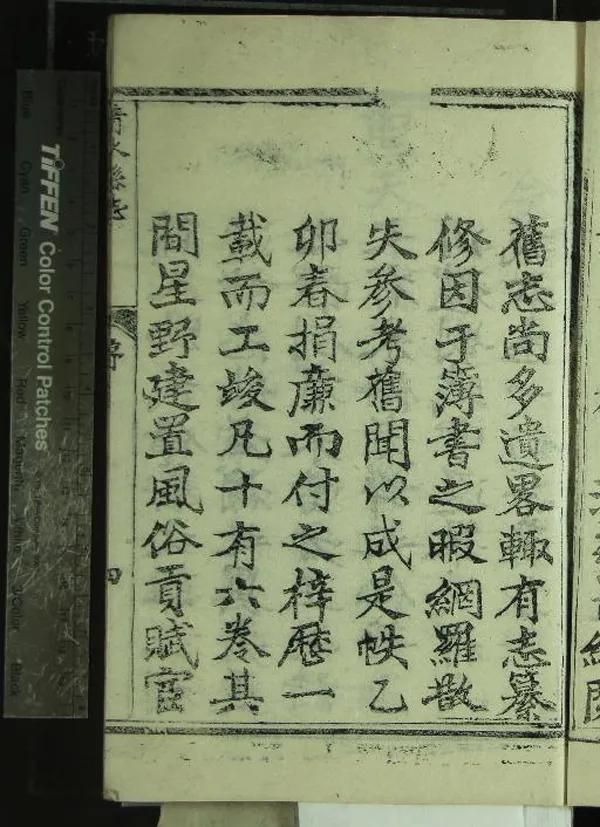 舊志尚多遺畧輙有志纂
修因于簿書之暇網羅散
失參考舊聞以成是帙乙
卯春捐廉而付之梓歷一
載而工竣凡十有六卷其
間星野建置風俗貢賦官
清水縣志
序
四
TIFFEN Color Control Patches
Blue Cyan Green Yellow Red Magenta White 3/Color Black